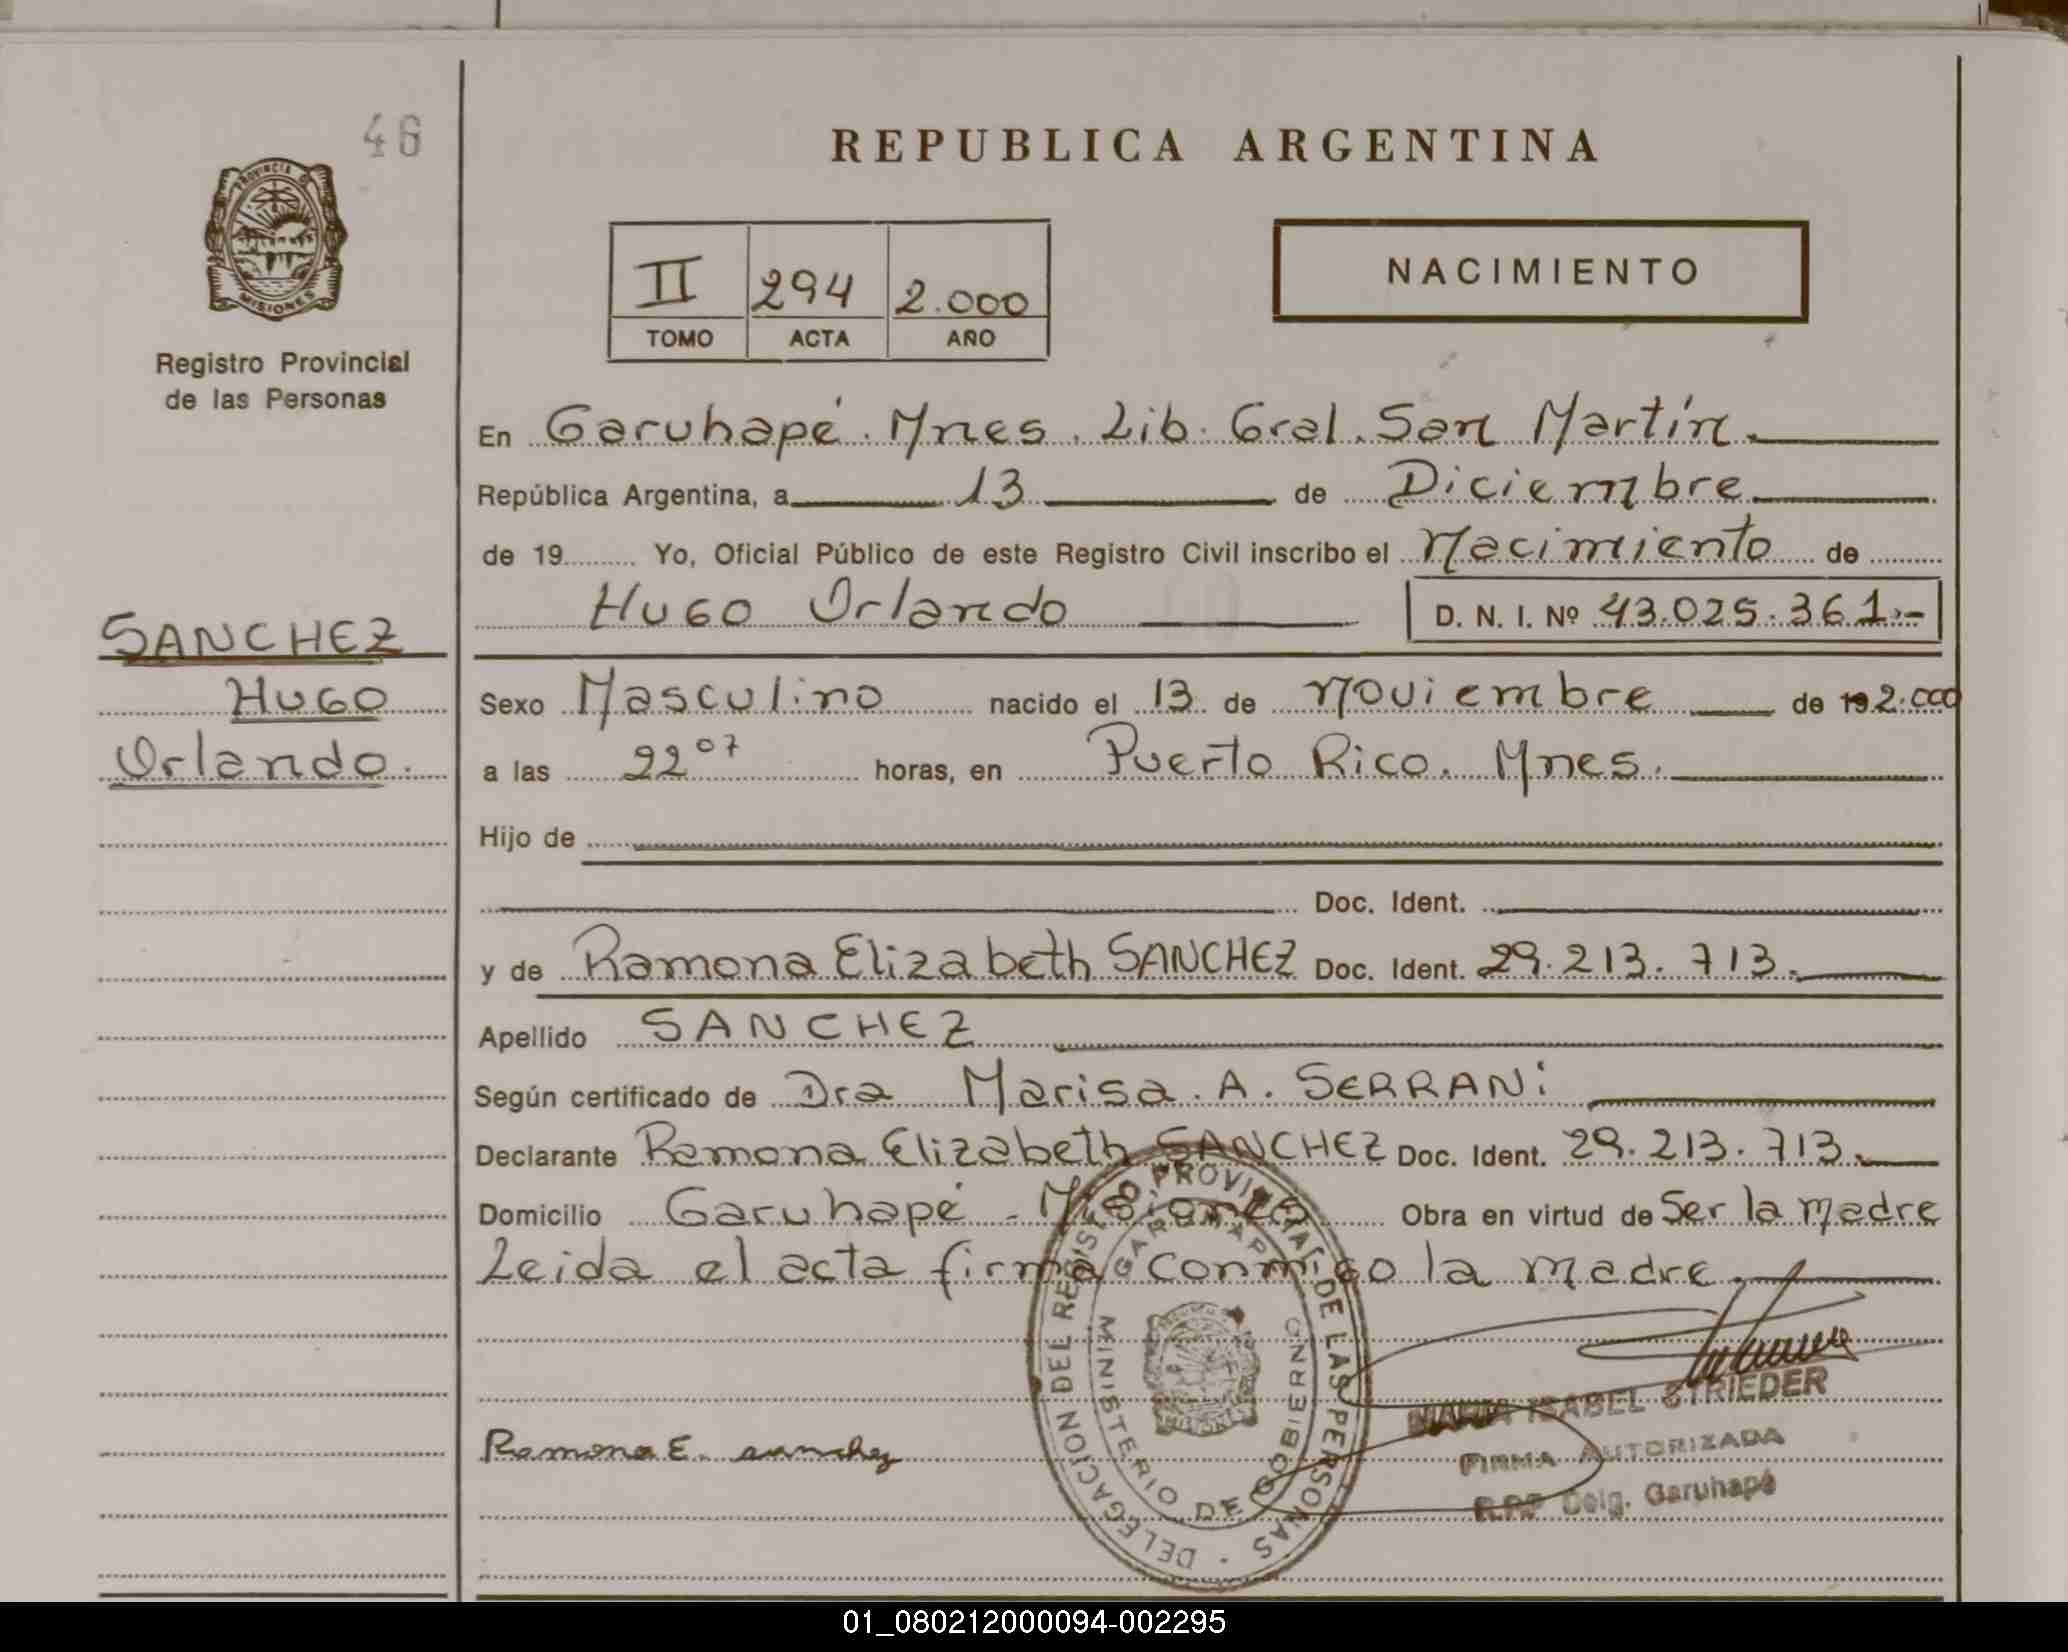 46
REPUBLICA ARGENTINA
PROVINCIA D
MISIONES
Registro Provincial
de las Personas
II 294 2.000
TOMO ACTA AÑO
NACIMIENTO
En Garuhapé. Mnes. Lib. Gral. San Martín.
República Argentina, a 13 de Diciembre
de 19 Yo, Oficial Público de este Registro Civil inscribo el Nacimiento de
Hugo Orlando D. N. I. Nº 43.025.361.-
SANCHEZ
Hugo
Orlando.
Sexo Masculino nacido el 13 de Noviembre de 19 2.000
a las 22 07 horas, en Puerto Rico. Mnes.
Hijo de
Doc. Ident.
y de Ramona Elizabeth SANCHEZ Doc. Ident. 29.213.713.
Apellido SANCHEZ
Según certificado de Dra Marisa. A. SERRANi
Declarante Ramona Elizabeth SANCHEZ Doc. Ident. 29.213.713.
Domicilio Garuhapé - Misiones Obra en virtud de Ser la madre
Leida el acta firma conmigo la madre.
DELEGACION DEL REGISTRO PROVINCIAL DE LAS PERSONAS
GARUHAPE
MINISTERIO DE GOBIERNO
MARIA ISABEL STRIEDER
FIRMA AUTORIZADA
R.P.P Delg. Garuhapé
Ramona E. sanchez
01_080212000094-002295